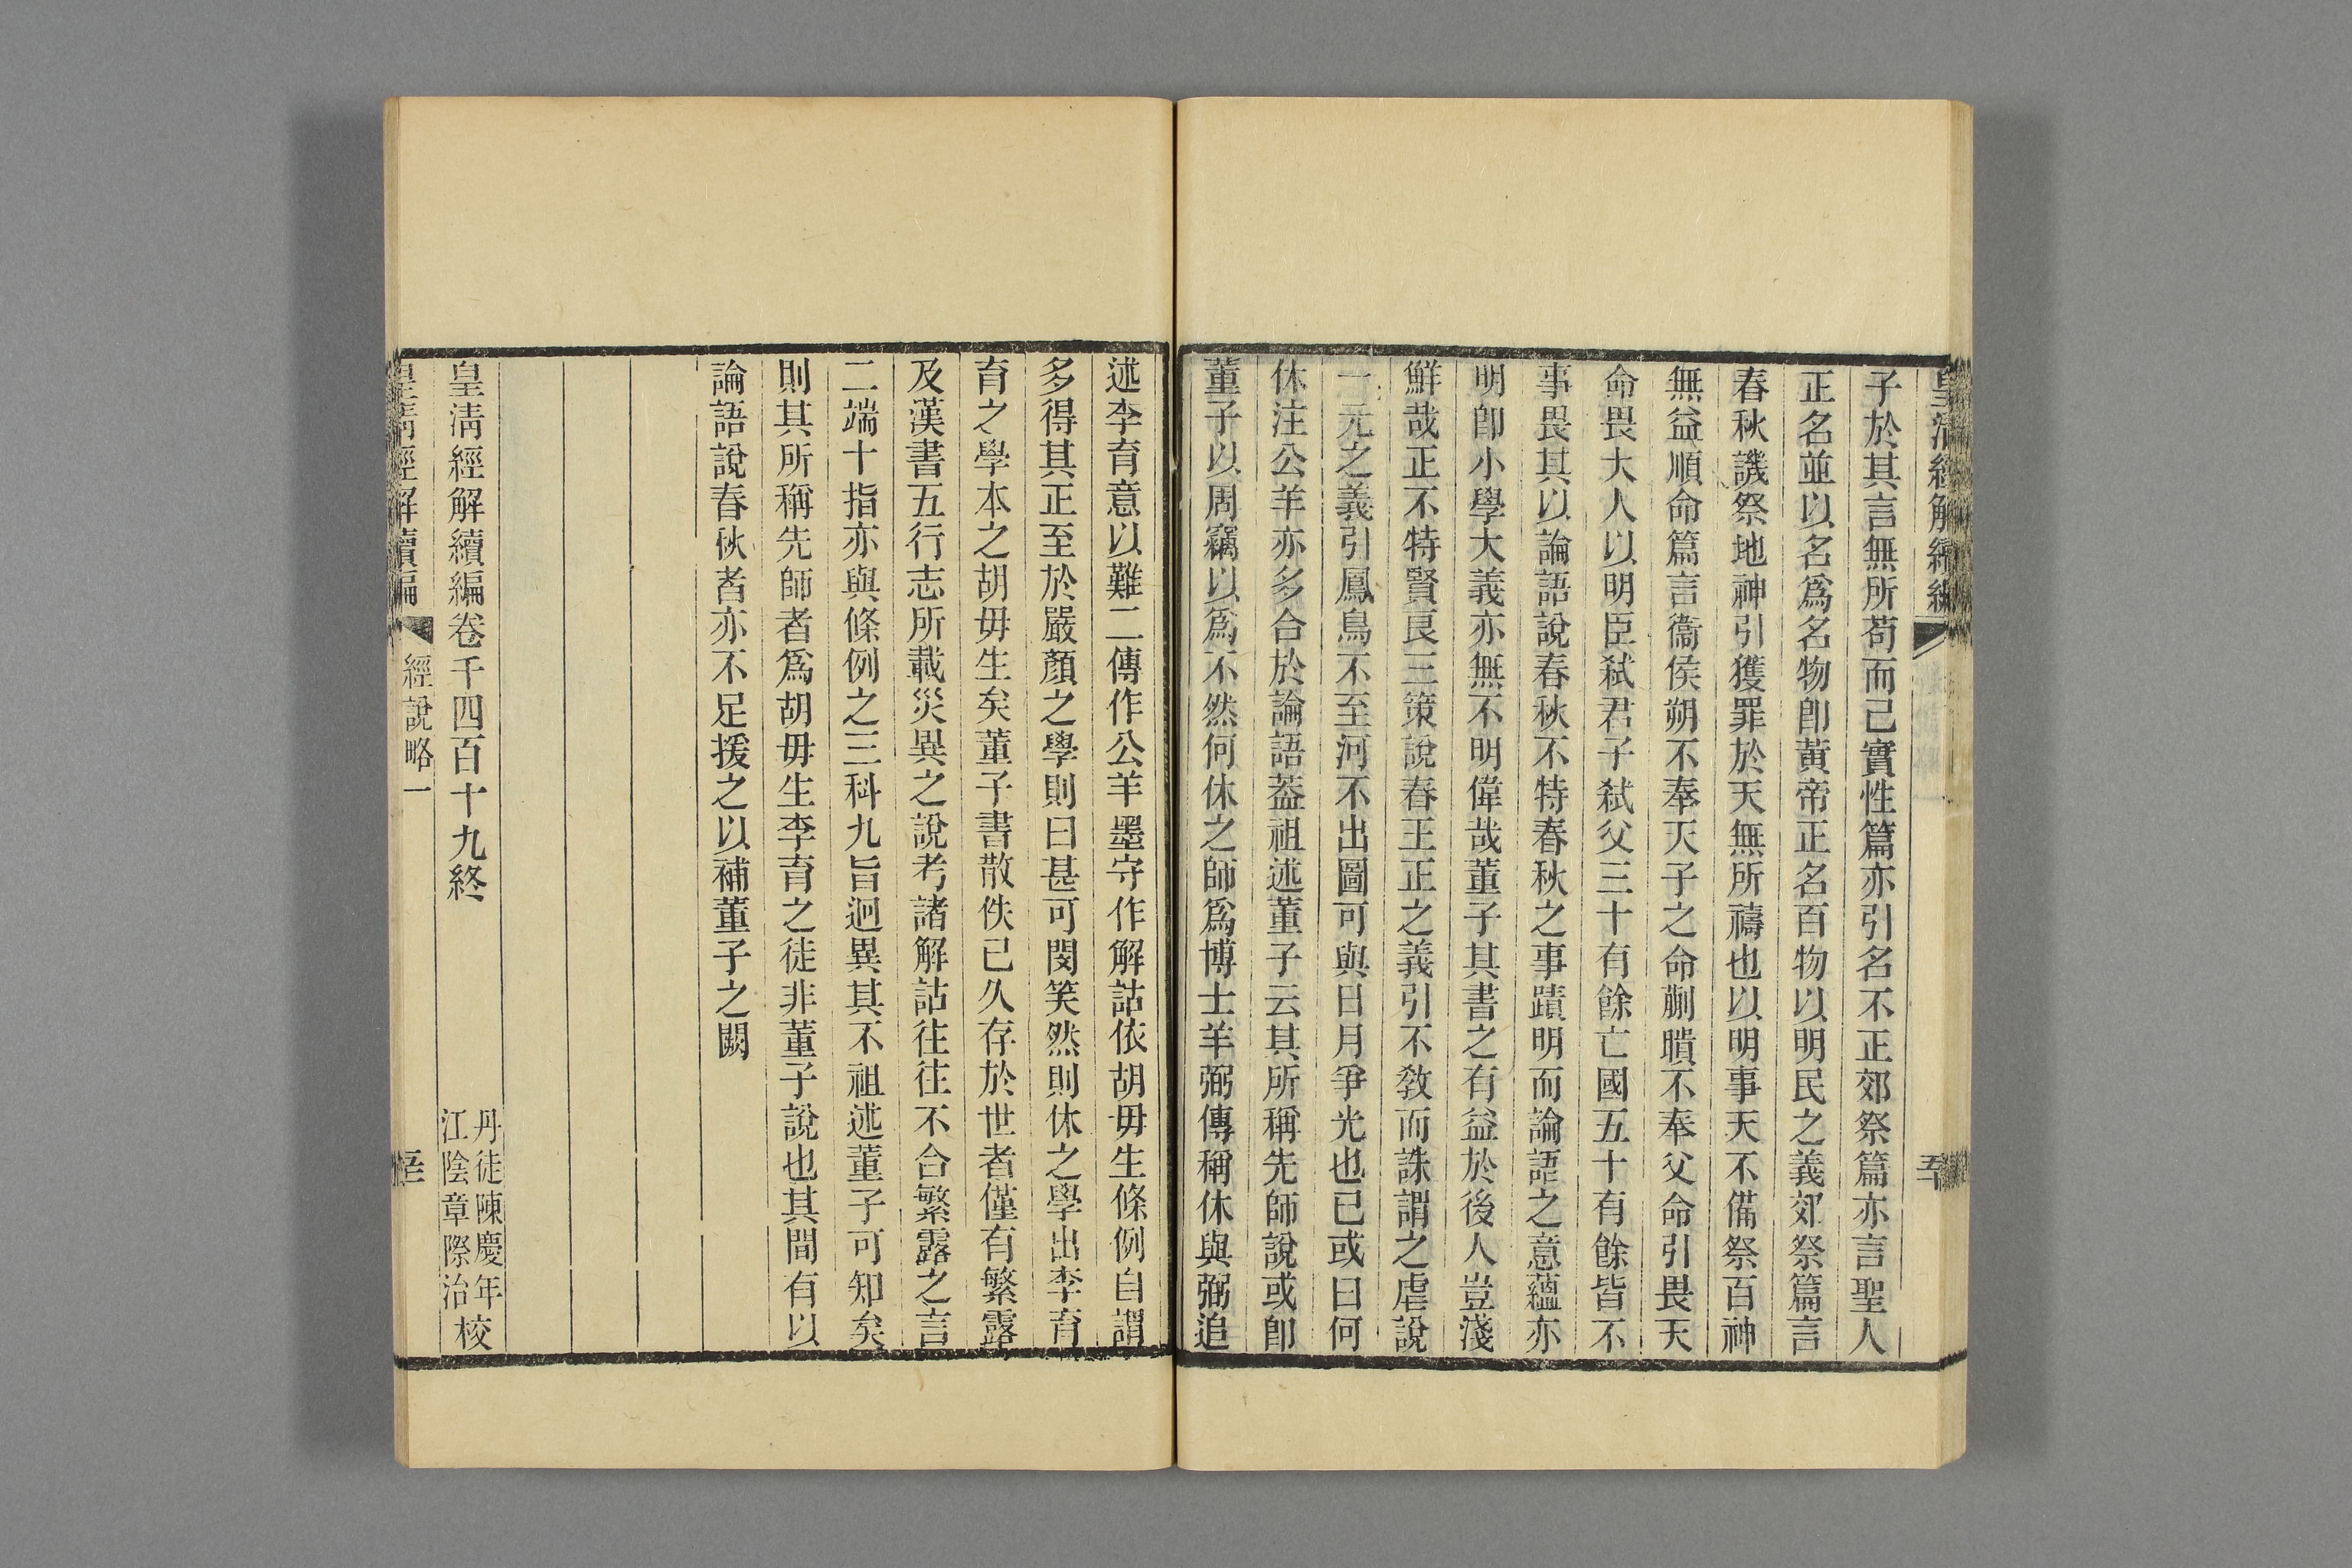 皇清經解續編
子於其言無所苟而已實性篇亦引名不正郊祭篇亦言聖人
正名並以名爲名物卽黃帝正名百物以明民之義郊祭篇言
春秋譏祭地神引獲罪於天無所禱也以明事天不備祭百神
無益順命篇言衞侯朔不奉天子之命蒯聵不奉父命引畏天
命畏大人以明臣弒君子弒父三十有餘亡國五十有餘皆不
事畏其以論語說春秋不特春秋之事蹟明而論語之意蘊亦
明卽小學大義亦無不明偉哉董子其書之有益於後人豈淺
鮮哉正不特賢良三策說春王正之義引不敎而誅謂之虐說
一元之義引鳳鳥不至河不出圖可與日月爭光也已或曰何
休注公羊亦多合於論語葢祖述董子云其所稱先師說或卽
董子以周竊以爲不然何休之師爲博士羊弼傳稱休與弼追
述李育意以難二傳作公羊墨守作解詁依胡毋生條例自謂
多得其正至於嚴顏之學則曰甚可閔笑然則休之學出李育
育之學本之胡毋生矣董子書散佚已久存於世者僅有繁露
及漢書五行志所載災異之說考諸解詁往往不合繁露之言
二端十指亦與條例之三科九旨迥異其不祖述董子可知矣
則其所稱先師者爲胡毋生李育之徒非董子說也其間有以
論語說春秋者亦不足援之以補董子之闕
皇淸經解續編卷千四百十九終
丹徒陳慶年
江陰章際治
校
皇淸經解續編
經說略一